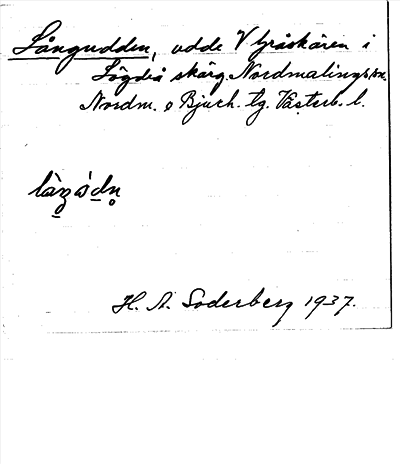 Långudden, udde V Gråskären i
Lögdeå skärg. Nordmalings sn.
Nordm. o Bjurh. tg. Västerb. l.
H. A. Soderberg 1937.